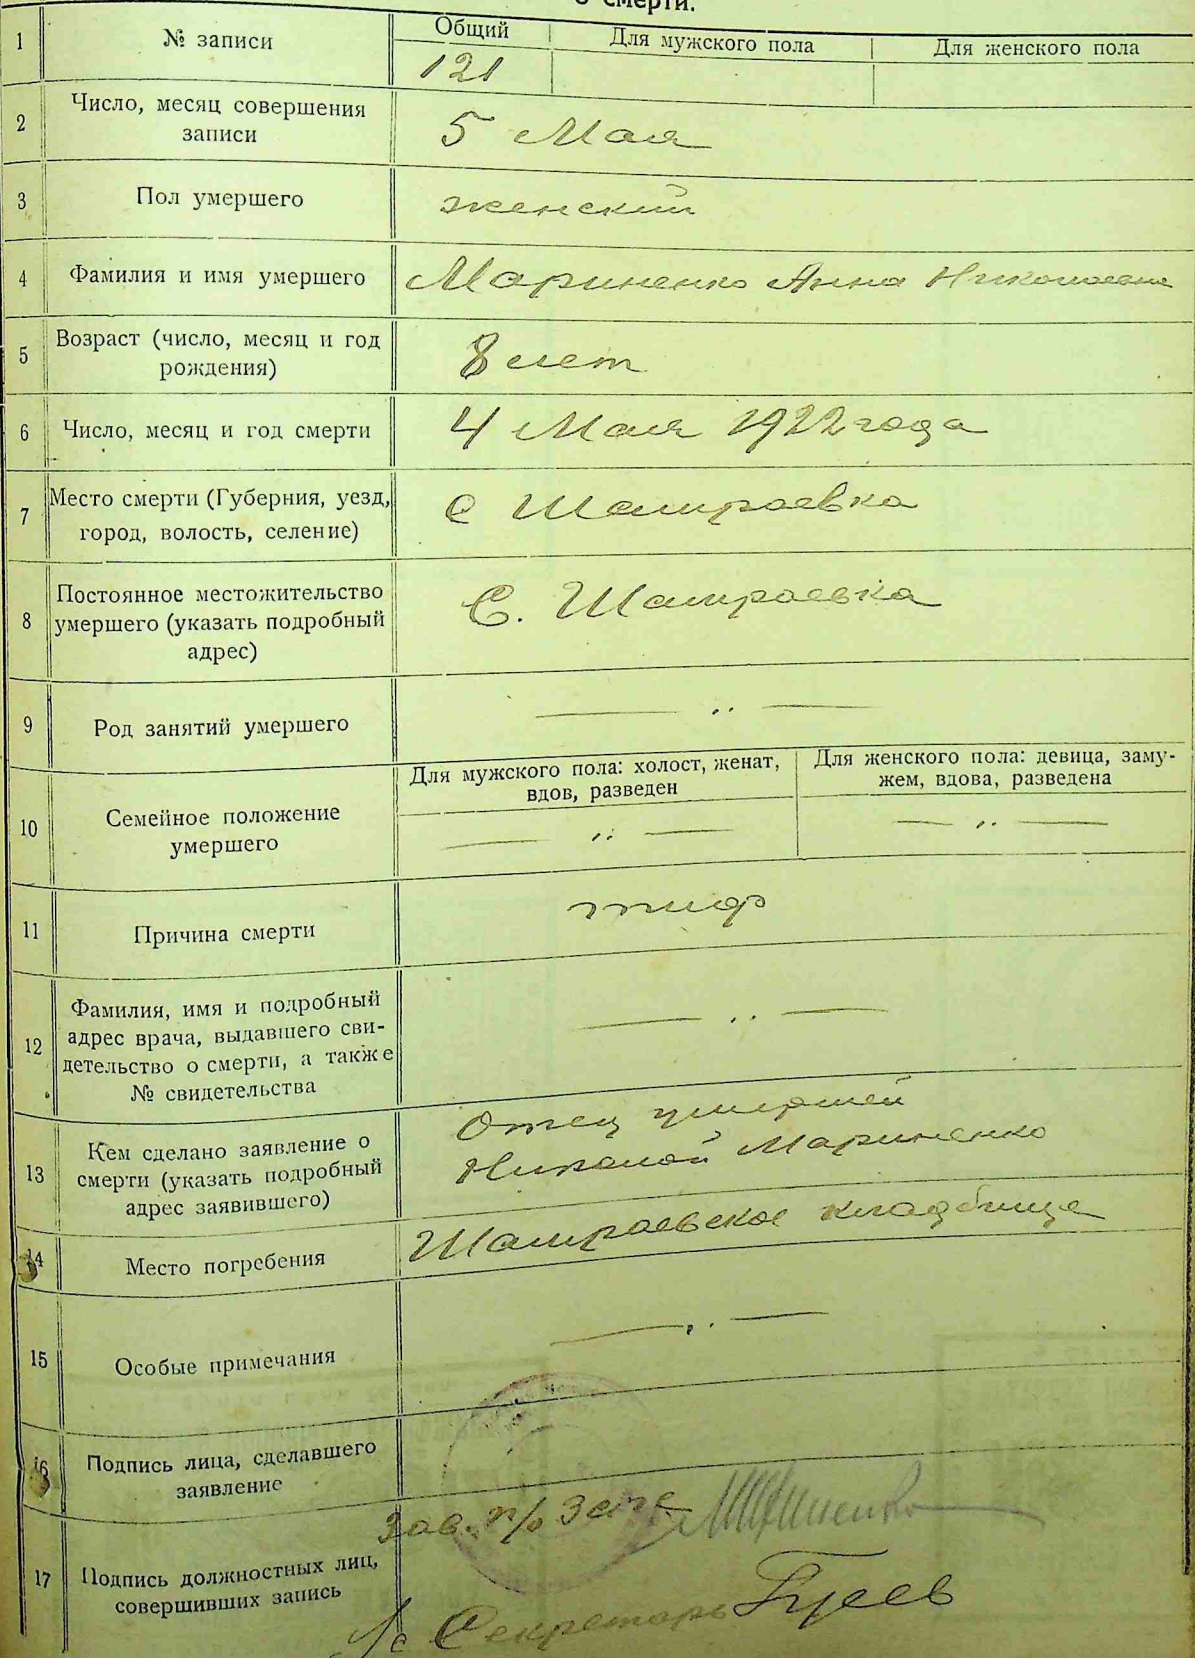 о смерти.
1 № записи Общий Для мужского пола Для женского пола
121
2 Число, месяц совершения
записи
5 Мая
3 Пол умершего женский
4 Фамилия и имя умершего Мариненко Анна Николаевна
5 Возраст (число, месяц и год
рождения)
8 лет
6 Число, месяц и год смерти 4 Мая 1922 года
7 Место смерти (Губерния, уезд,
город, волость, селение)
С Шамраевка
8 Постоянное местожительство
умершего (указать подробный
адрес)
С. Шамраевка
9 Род занятий умершего — „ —
10 Семейное положение
умершего
Для мужского пола: холост, женат,
вдов, разведен
— „ —
Для женского пола: девица, заму-
жем, вдова, разведена
— „ —
11 Причина смерти тиф
12 Фамилия, имя и подробный
адрес врача, выдавшего сви-
детельство о смерти, а также
№ свидетельства
— „ —
13 Кем сделано заявление о
смерти (указать подробный
адрес заявившего)
Отец умершей
Николай Мариненко
14 Место погребения Шамраевское кладбище
15 Особые примечания — „ —
16 Подпись лица, сделавшего
заявление
17 Подпись должностных лиц,
совершивших запись
Зав. п/о Загс
Секретарь Гусев